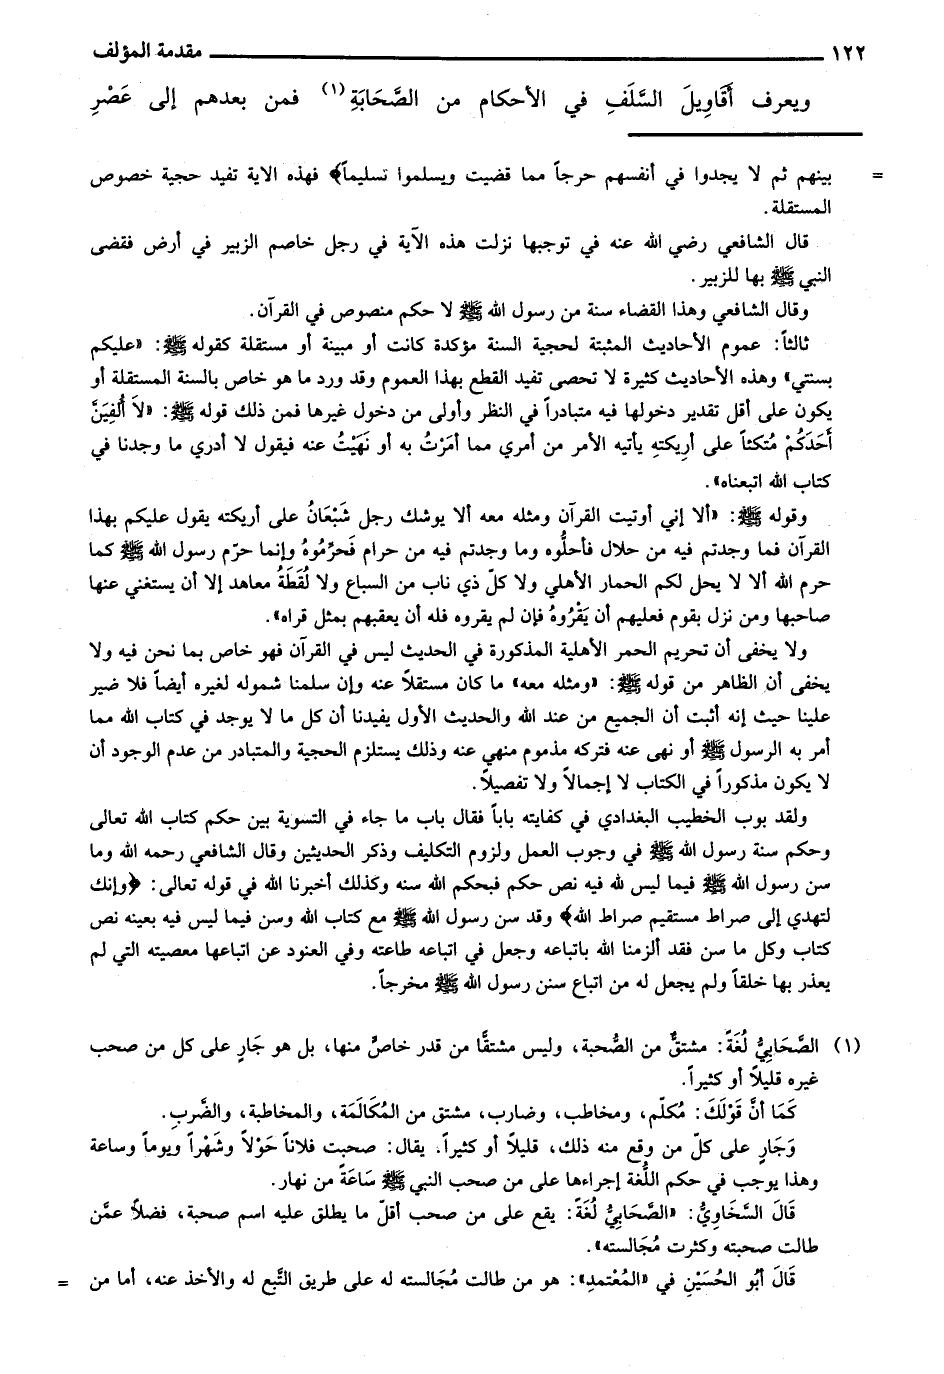 ١٢٢ مقدمة المؤلف
ويعرف أَقَاوِيلَ السَّلَفِ في الأحكام من الصَّحَابَةِ(١) فمن بعدهم إلى عَصْرِ
= بينهم ثم لا يجدوا في أنفسهم حرجاً مما قضيت ويسلموا تسليماً﴾ فهذه الاية تفيد حجية خصوص
المستقلة.
قال الشافعي رضي الله عنه في توجبها نزلت هذه الآية في رجل خاصم الزبير في أرض فقضى
النبي ﷺ بها للزبير.
وقال الشافعي وهذا القضاء سنة من رسول الله ﷺ لا حكم منصوص في القرآن.
ثالثاً: عموم الأحاديث المثبتة لحجية السنة مؤكدة كانت أو مبينة أو مستقلة كقوله ﷺ: «عليكم
بسنتي» وهذه الأحاديث كثيرة لا تحصى تفيد القطع بهذا العموم وقد ورد ما هو خاص بالسنة المستقلة أو
يكون على أقل تقدير دخولها فيه متبادراً في النظر وأولى من دخول غيرها فمن ذلك قوله ﷺ: «لاَ أُلْفِيَنَّ
أَحَدَكُمْ مُتكئاً على أريكتهِ يأتيه الأمر من أمري مما أمَرْتُ به أو نَهَيْتُ عنه فيقول لا أدري ما وجدنا في
كتاب الله اتبعناه».
وقوله ﷺ: «ألا إني أوتيت القرآن ومثله معه ألا يوشك رجل شَبْعَانُ على أريكته يقول عليكم بهذا
القرآن فما وجدتم فيه من حلال فأحلُّوه وما وجدتم فيه من حرام فَحرِّمُوهُ وإنما حرّم رسول الله ﷺ كما
حرم الله ألا لا يحل لكم الحمار الأهلي ولا كلّ ذي ناب من السباع ولا لُقَطَةُ معاهد إلا أن يستغني عنها
صاحبها ومن نزل بقوم فعليهم أن يَقْرُوهُ فإن لم يقروه فله أن يعقبهم بمثل قراه».
ولا يخفى أن تحريم الحمر الأهلية المذكورة في الحديث ليس في القرآن فهو خاص بما نحن فيه ولا
يخفى أن الظاهر من قوله ﷺ: «ومثله معه» ما كان مستقلاً عنه وإن سلمنا شموله لغيره أيضاً فلا ضير
علينا حيث إنه أثبت أن الجميع من عند الله والحديث الأول يفيدنا أن كل ما لا يوجد في كتاب الله مما
أمر به الرسول ﷺ أو نهى عنه فتركه مذموم منهي عنه وذلك يستلزم الحجية والمتبادر من عدم الوجود أن
لا يكون مذكوراً في الكتاب لا إجمالاً ولا تفصيلاً.
ولقد بوب الخطيب البغدادي في كفايته باباً فقال باب ما جاء في التسوية بين حكم كتاب الله تعالى
وحكم سنة رسول الله ﷺ في وجوب العمل ولزوم التكليف وذكر الحديثين وقال الشافعي رحمه الله وما
سن رسول الله ﷺ فيما ليس لله فيه نص حكم فبحكم الله سنه وكذلك أخبرنا الله في قوله تعالى: ﴿وإنك
لتهدي إلى صراط مستقيم صراط الله﴾ وقد سن رسول الله ﷺ مع كتاب الله وسن فيما ليس فيه بعينه نص
كتاب وكل ما سن فقد ألزمنا الله باتباعه وجعل في اتباعه طاعته وفي العنود عن اتباعها معصيته التي لم
يعذر بها خلقاً ولم يجعل له من اتباع سنن رسول الله ﷺ مخرجاً.
(١) الصَّحَابِيُّ لُغَةً: مشتقٌّ من الصُّحبة، وليس مشتقًّا من قدر خاصٍّ منها، بل هو جَارٍ على كل من صحب
غيره قليلاً أو كثيراً.
كَمَا أنَّ قَوْلَكَ: مُكلّم، ومخاطب، وضارب، مشتق من المُكَالَمَة، والمخاطبة، والضَّرب.
وَجَارٍ على كلّ من وقع منه ذلك، قليلاً أو كثيراً. يقال: صحبت فلاناً حَوْلاً وشَهْراً ويوماً وساعة
وهذا يوجب في حكم اللُّغة إجراءها على من صحب النبي ﷺ سَاعَةً من نهار.
قَالَ السَّخَاوِيُّ: «الصَّحَابِيُّ لُغَةً: يقع على من صحب أقلّ ما يطلق عليه اسم صحبة، فضلاً عمَّن
طالت صحبته وكثرت مُجَالسته».
قَالَ أَبُو الحُسَيْنِ في «المُعْتمدِ»: هو من طالت مُجَالسته له على طريق التَّبع له والأخذ عنه، أما من =